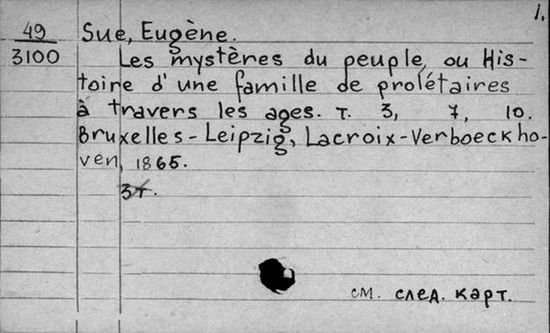 1.
49 Sue, Eugène.
3100 Les mystères du peuple, ou His-
toire d'une famille de prolétaires
à travers les ages. T. 3, 7, 10.
Bruxelles-Leipzig, Lacroix-Verboeckho-
ven, 1865.
3т.
см. след. карт.